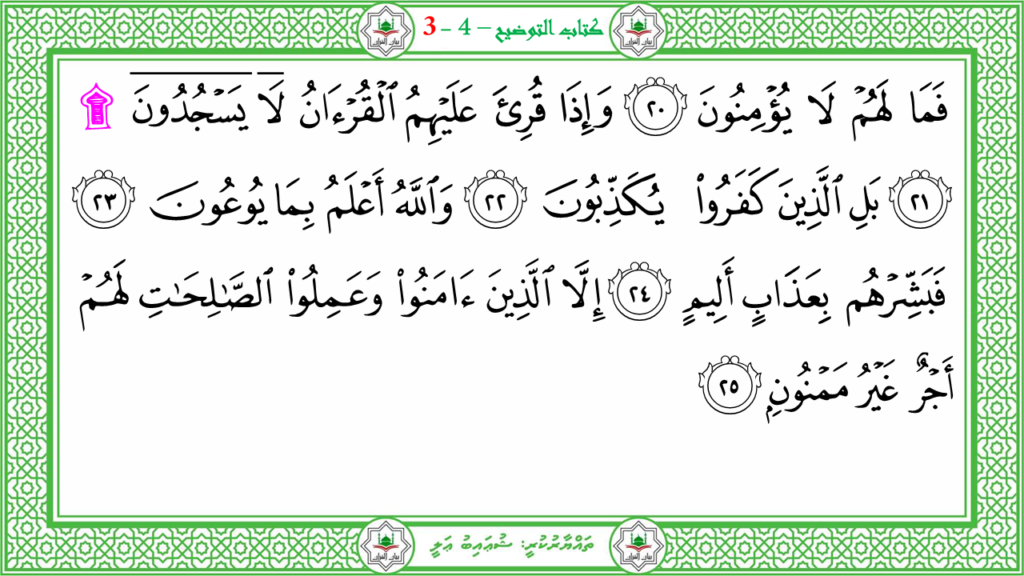 كتاب التوضيح – 4 - 3
فَمَا لَهُمْ لَا يُؤْمِنُونَ ٢٠ وَإِذَا قُرِئَ عَلَيْهِمُ ٱلْقُرْءَانُ لَا يَسْجُدُونَ ۩
٢١ بَلِ ٱلَّذِينَ كَفَرُوا۟ يُكَذِّبُونَ ٢٢ وَٱللَّهُ أَعْلَمُ بِمَا يُوعُونَ ٢٣
فَبَشِّرْهُم بِعَذَابٍ أَلِيمٍ ٢٤ إِلَّا ٱلَّذِينَ ءَامَنُوا۟ وَعَمِلُوا۟ ٱلصَّـٰلِحَـٰتِ لَهُمْ
أَجْرٌ غَيْرُ مَمْنُونٍۭ ٢٥
ތައްޔާރުކުރީ: ޝުޢައިބު ޢަލީ